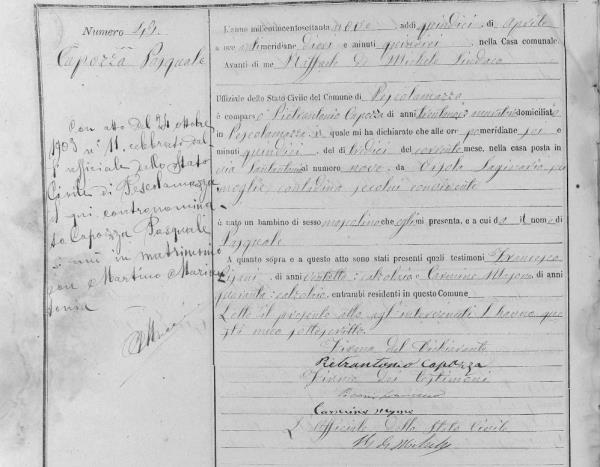 Numero 43.
Capozza Pasquale
Con atto del 24 ottobre
1903 n° 11 celebrato dal
ufficiale dello Stato
Civile di Pescolamazza
il qui contronomina
to Capozza Pasquale
si unì in matrimonio
con Martino Maria
L'anno milleottocentottanta nove addì quindici di Aprile
a ore antimeridiane dieci e minuti quindici, nella Casa comunale.
Avanti di me Raffaele De Michele Sindaco
Uffiziale dello Stato Civile del Comune di Pescolamazza
è comparso Pietrantonio Capozza di anni domiciliato
in Pescolamazza il quale mi ha dichiarato che alle ore pomeridiane sei e
minuti quindici, del dì tredici del corrente mese, nella casa posta in
via al numero nove, da
moglie, contadina, seco lui convivente
è nato un bambino di sesso mascolino che egli mi presenta, e a cui dà il nome di
Pasquale
A quanto sopra e a questo atto sono stati presenti quali testimoni Francesco
Pisani, di anni calzolaio e Carmine di anni
quaranta calzolaio, entrambi residenti in questo Comune
Letto il presente atto agl'intervenuti l'hanno
meco sottoscritto
Firma del Dichiarante
Pietrantonio Capozza
Firma dei testimoni
Carmine
L'Officiale dello Stato Civile
R. De Michele